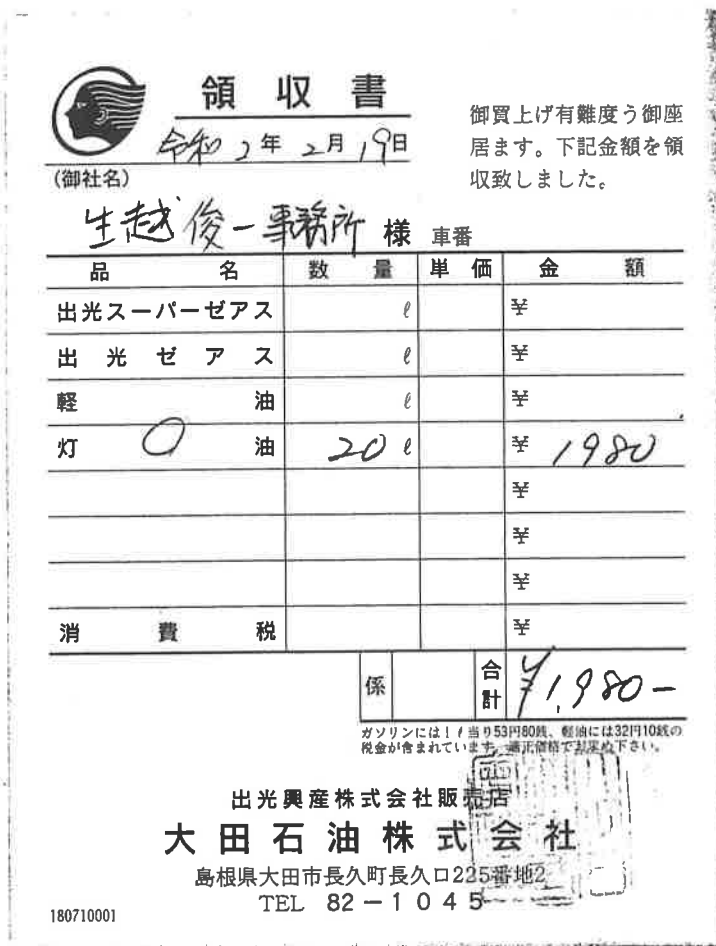 領収書
令和2年2月19日
御買上げ有難度う御座
居ます。下記金額を領
収致しました。
(御社名)
生越俊一事務所 様 車番
品名 数量 単価 金額
出光スーパーゼアス ℓ ¥
出光ゼアス ℓ ¥
軽油 ℓ ¥
灯油 20 ℓ ¥ 1980
¥
¥
¥
消費税 ¥
係 合計 ¥1,980-
ガソリンには1ℓ当り53円80銭、軽油には32円10銭の
税金が含まれています。適正価格でお求め下さい。
出光興産株式会社販売店
大田石油株式会社
島根県大田市長久町長久口225番地2
TEL 82-1045
180710001